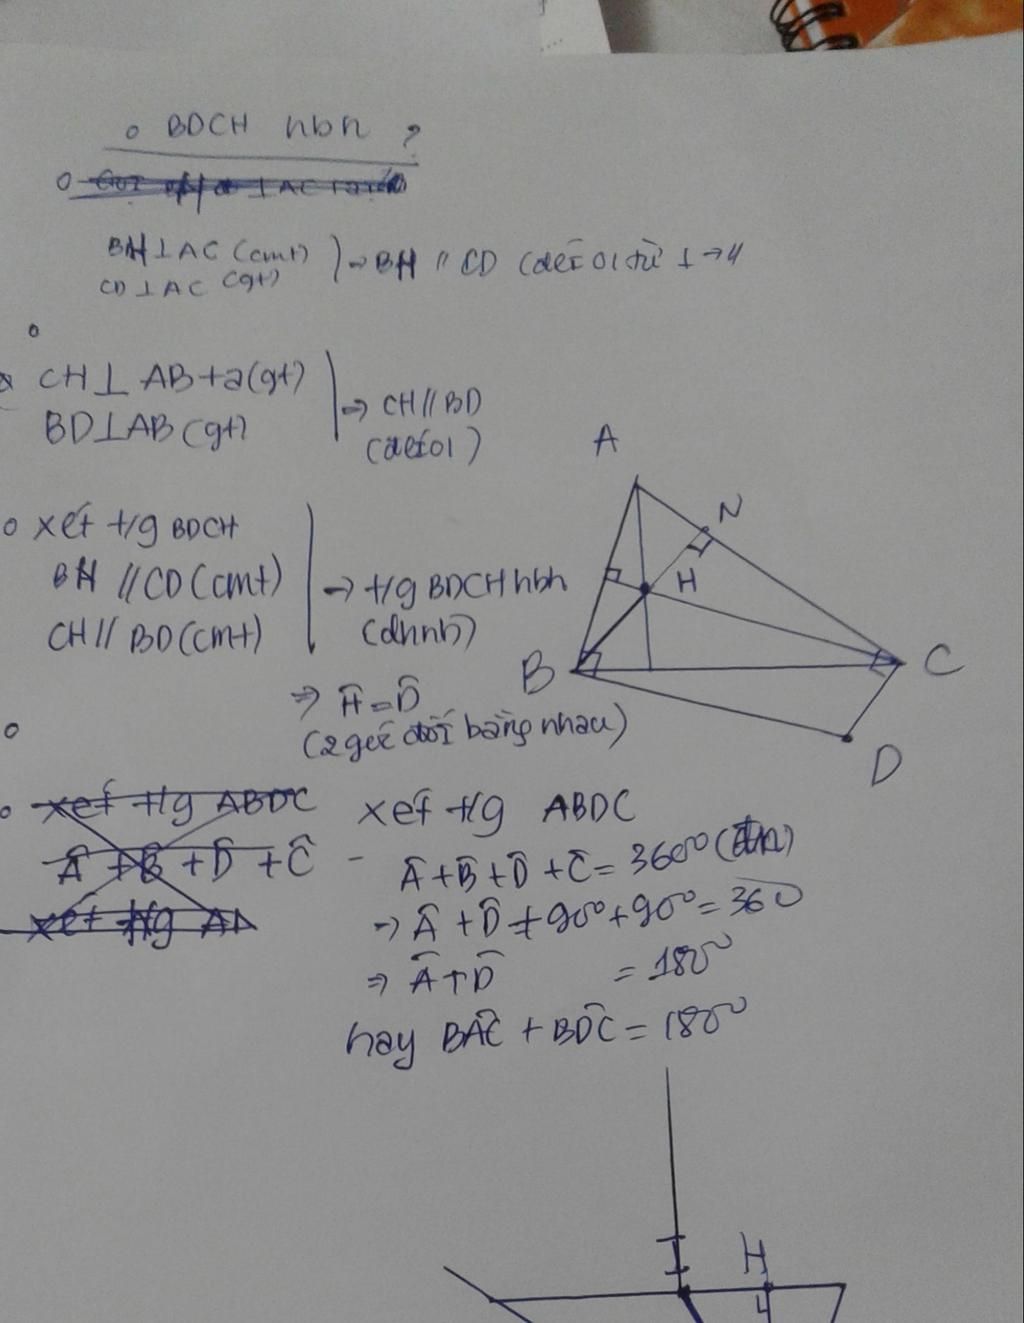 o BDCH hbh ?
o
BH ⊥ AC (cmt)
CD ⊥ AC (gt)
→ BH // CD (từ ⊥ → //
CH ⊥ AB (gt)
BD ⊥ AB (gt)
⇒ CH // BD
o xét t/g BDCH
BH // CD (cmt)
CH // BD (cmt)
→ t/g BDCH hbh
(dhnb)
⇒ Ĥ = D̂
(2 góc đối bằng nhau)
o xét t/g ABDC
Â + B̂ + D̂ + Ĉ
xét t/g
xét t/g ABDC
Â + B̂ + D̂ + Ĉ = 360°
→ Â + D̂ + 90° + 90° = 360
⇒ Â + D̂ = 180°
hay BÂC + BD̂C = 180°
A
N
H
B
C
D
I
H